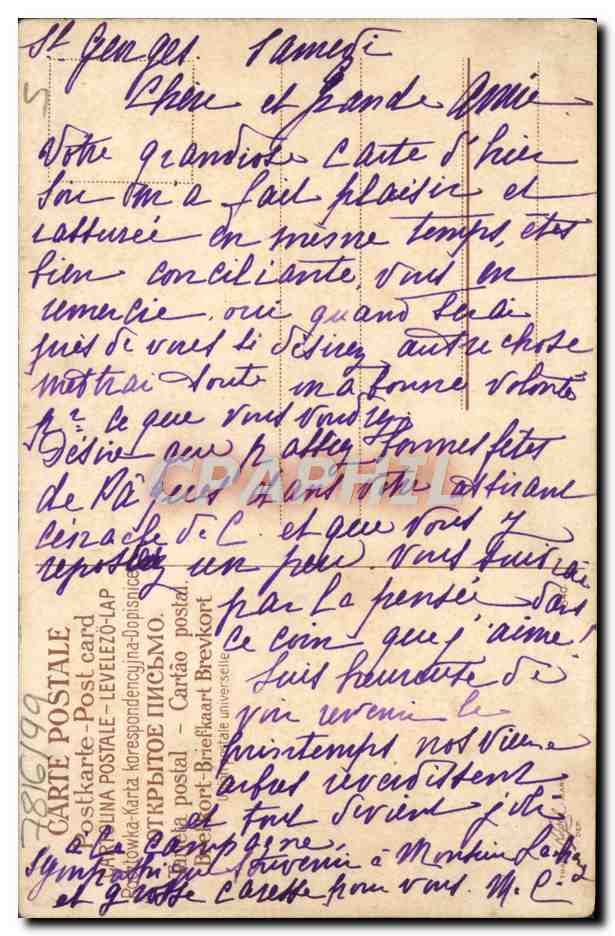 St Georges. Samedi
Chère et grande Amie
Votre grandiose carte d'hier
soir m'a fait plaisir et
rassurée en même temps, êtes
bien conciliante, vous en
remercie, oui quand serai
près de vous si désirez autre chose
mettrai toute ma bonne volonté
pr ce que vous voudrez
Désire que passiez bonnes fêtes
de Pâques dans votre
de C et que vous y
reposiez un peu. Vous suivrai
par la pensée dans
ce coin que j'aime!
Suis heureuse de
voir revenir le
printemps nos vieux
arbres reverdissent
et tout devient joli
à la campagne,
sympathique souvenir à Monsieur
et grosse caresse pour vous. M. C.
CARTE POSTALE
Postkarte-Post card
CARTOLINA POSTALE – LEVELEZŐ-LAP
Pocztówka-Karta korespondencyjna-Dopisnice
ОТКРЫТОЕ ПИСЬМО.
Tarjeta postal – Cartão postal.
Brefkort-Briefkaart Brevkort
Union postale universelle
7816/99
5
CPARPHIL